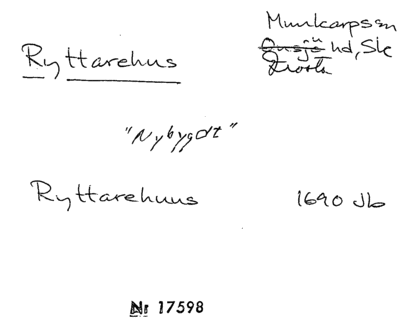 Ryttarehus
Munkarpssn
Onsjö hd, Sk
"Nybygdt"
Ryttarehuus 1690 Jb
Nr 17598